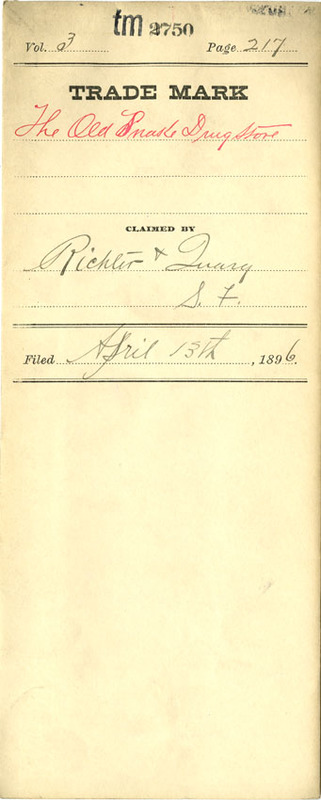 tm 2750
Vol. 3 Page 217
TRADE MARK
The Old Snake Drug Store
CLAIMED BY
Richter & Quary
S. F.
Filed April 13th, 1896.